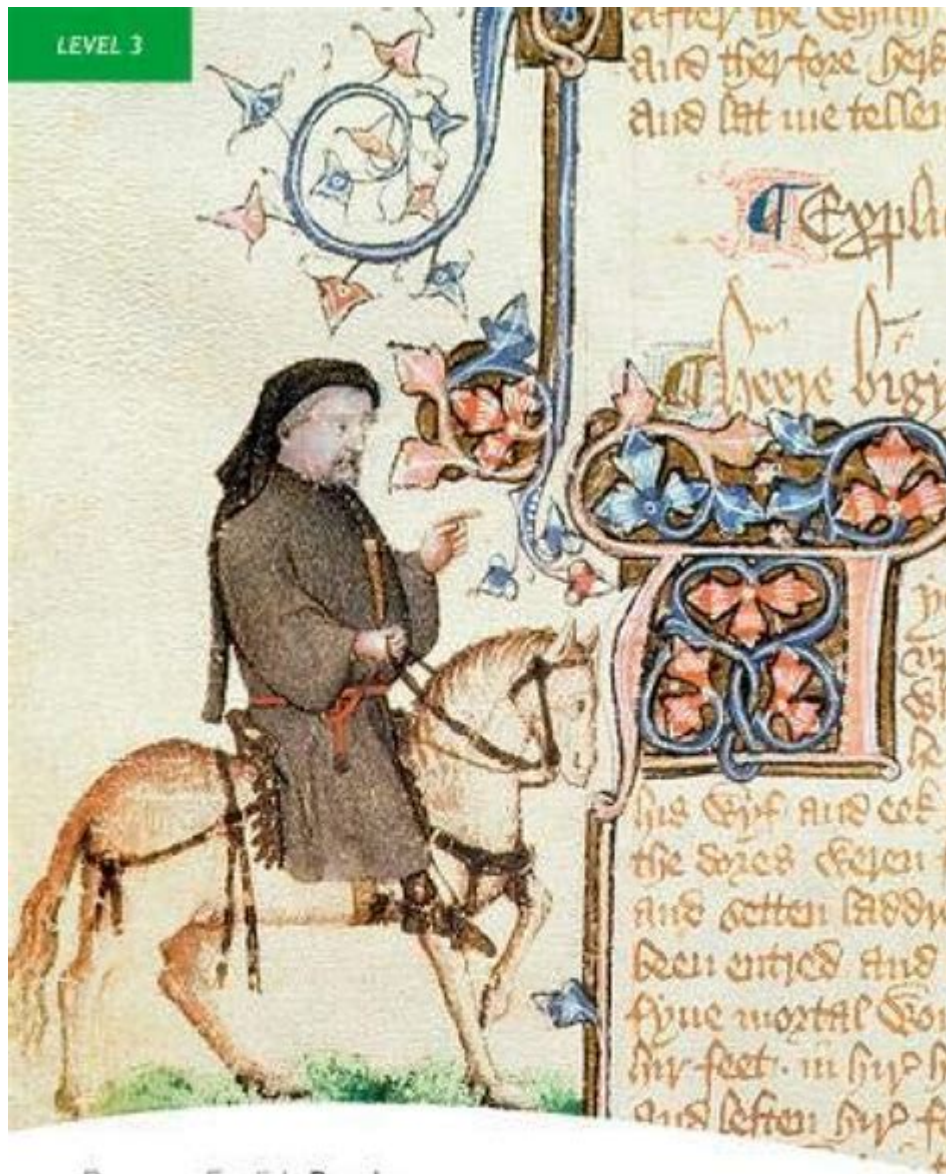 LEVEL 3
after the which
and therfore herk
and lat me tellen
Expli
Heere bigy
his wyf and eek
the dores weren
and setten laddr
been entred and
fyue mortal wou
hir feet. in hir h
and leften hir fo